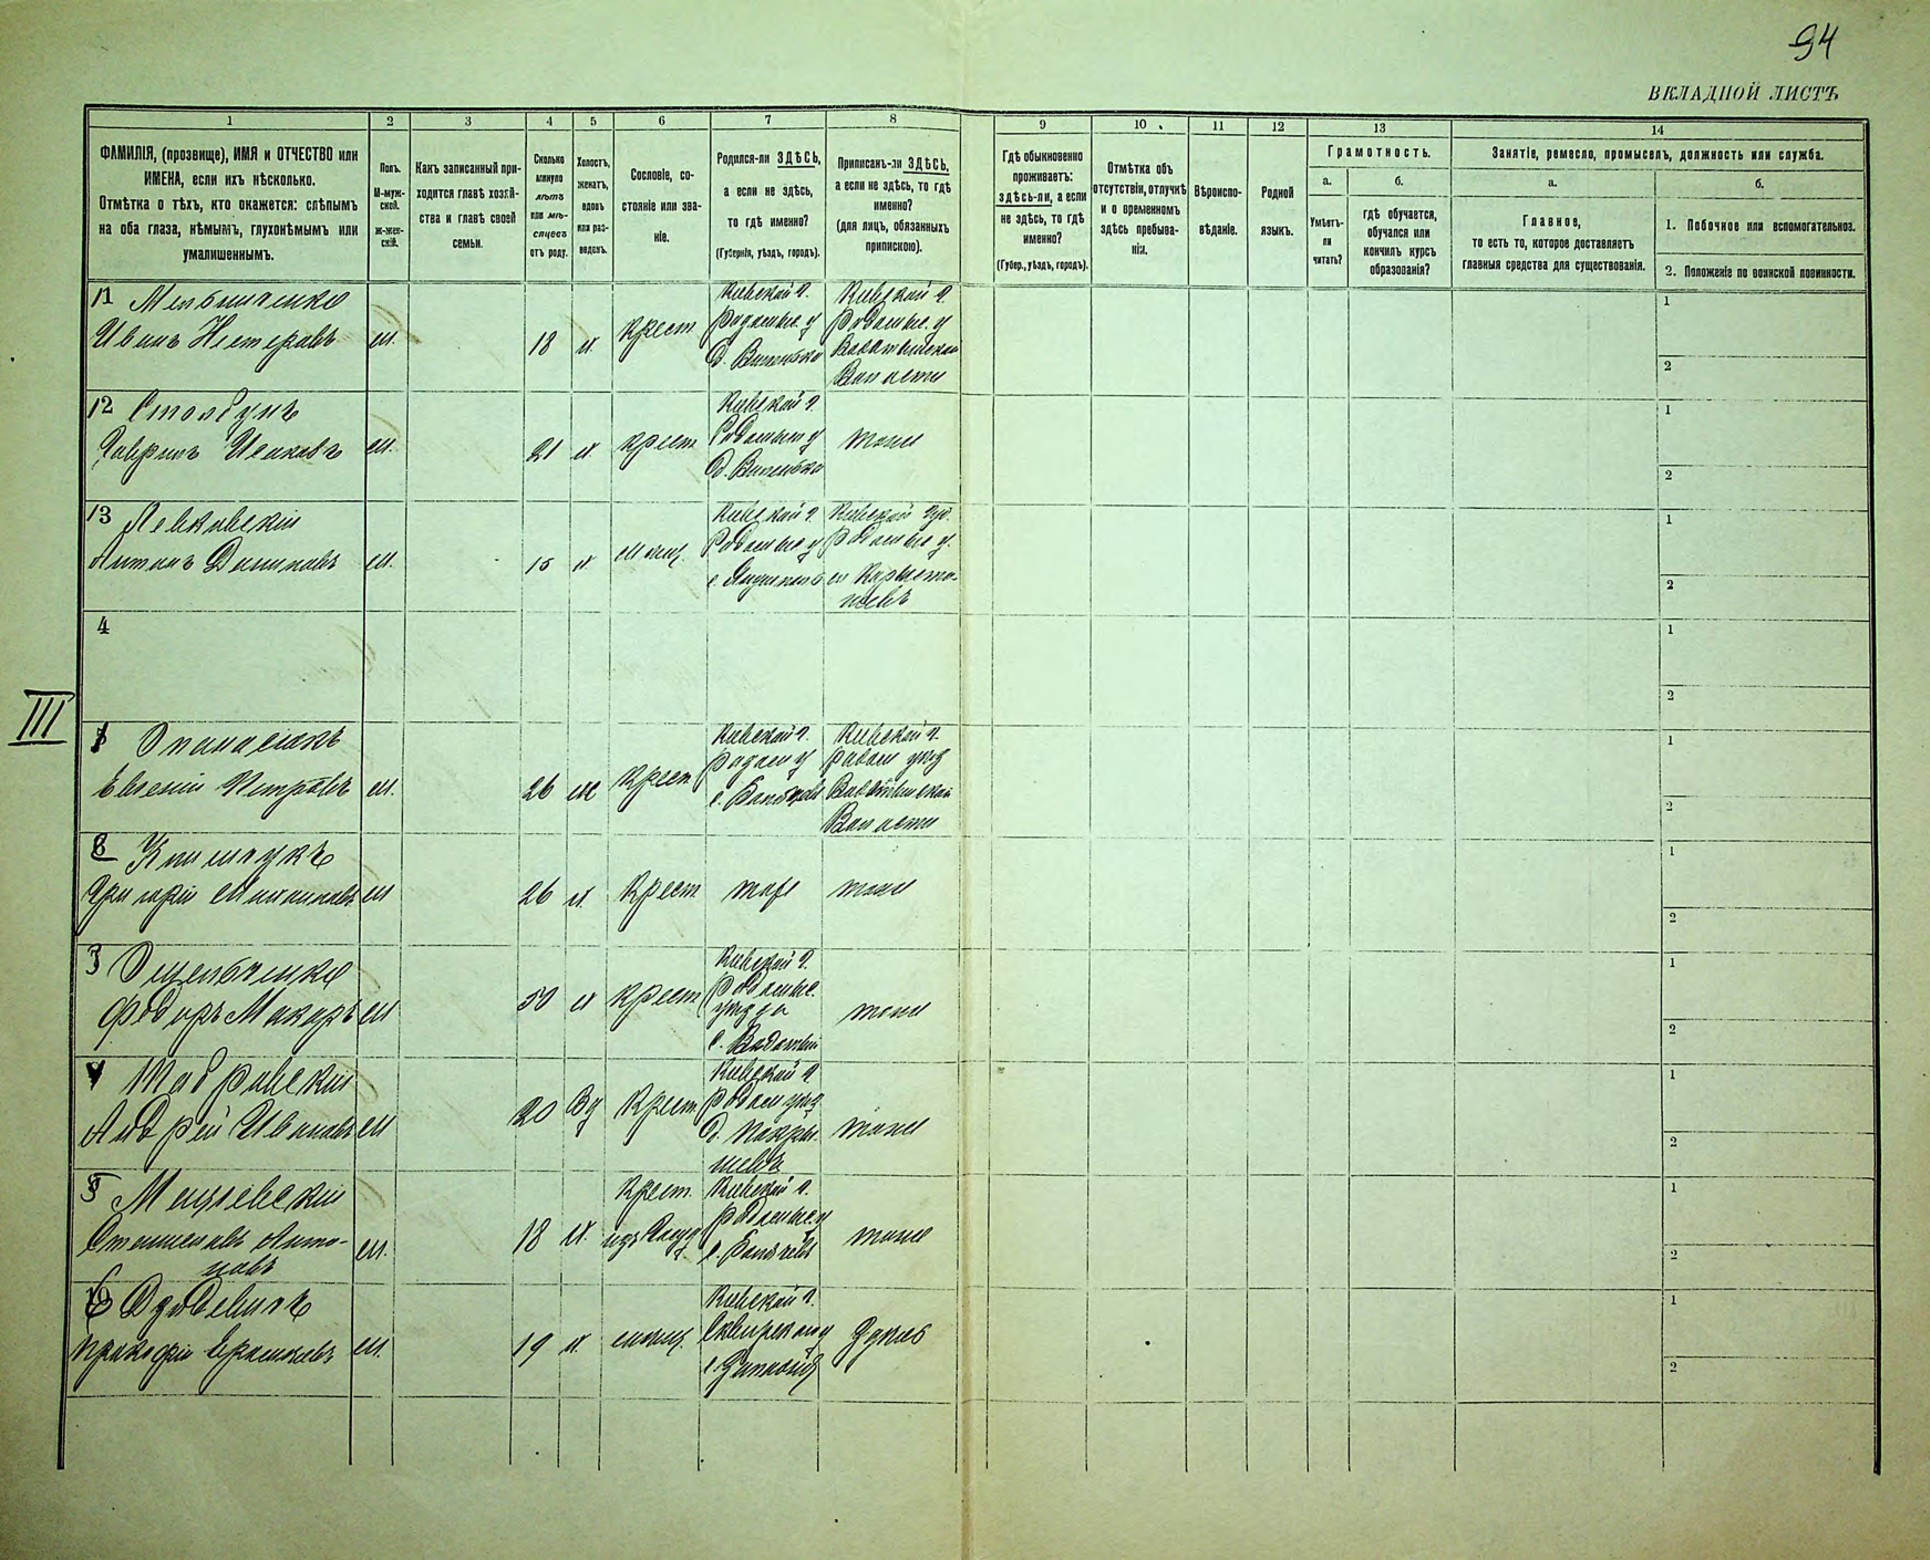 94
ВКЛАДНОЙ ЛИСТЪ
1
2
3
4
5
6
7
8
9
10
11
12
13
14
ФАМИЛІЯ, (прозвище), ИМЯ и ОТЧЕСТВО или
ИМЕНА, если ихъ нѣсколько.
Отмѣтка о тѣхъ, кто окажется: слѣпымъ
на оба глаза, нѣмымъ, глухонѣмымъ или
умалишеннымъ.
Полъ.
М-муж-
ской.
ж-жен-
скій.
Какъ записанный при-
ходится главѣ хозяй-
ства и главѣ своей
семьи.
Сколько
минуло
лѣтъ
или мѣ-
сяцевъ
отъ роду.
Холостъ,
женатъ,
вдовъ
или раз-
веденъ.
Сословіе, со-
стояніе или зва-
ніе.
Родился-ли ЗДѢСЬ,
а если не здѣсь,
то гдѣ именно?
(Губернія, уѣздъ, городъ).
Приписанъ-ли ЗДѢСЬ,
а если не здѣсь, то гдѣ
именно?
(для лицъ, обязанныхъ
припискою).
Гдѣ обыкновенно
проживаетъ:
здѣсь-ли, а если
не здѣсь, то гдѣ
именно?
(Губер., уѣздъ, городъ).
Отмѣтка объ
отсутствіи, отлучкѣ
и о временномъ
здѣсь пребыва-
ніи.
Вѣроиспо-
вѣданіе.
Родной
языкъ.
Грамотность.
а.
Умѣетъ-
ли
читать?
б.
гдѣ обучается,
обучался или
кончилъ курсъ
образованія?
Занятіе, ремесло, промыселъ, должность или служба.
а.
Главное,
то есть то, которое доставляетъ
главныя средства для существованія.
б.
1. Побочное или вспомогательное.
2. Положеніе по воинской повинности.
11 Мельниченко
Иванъ Нестеровъ
м.
18
х.
Крест
Кіевской г.
Радомыс. у
д. Вишенька
Кіевской г.
Радомыс. у
Волости
1
2
12 Столбунъ
Гаврилъ Исаковъ
м.
21
х.
Крест
Кіевской г.
Радомыс у
тоже
1
2
13 Левковскій
Антонъ Даниловъ
м.
15
х.
мѣщ.
Кіевской г.
Радомыс у
Кіевской губ.
Радомыс у.
1
2
4
1
2
III
1 Опанасюкъ
Евгеній Петровъ
м.
26
ж
Крест
Кіевской г.
Радом у
Кіевской г.
Радом уѣзд
Волости
1
2
Климчукъ
Григорій Михайловъ
м
26
х.
Крест
тоже
тоже
1
2
3 Омельченко
Федоръ Макаръ
м
50
х
Крест
Кіевской г.
Радомыс.
уѣзда
тоже
1
2
4
Андрей Ивановъ
м
20
Вд
Крест.
Кіевской г
Радом уѣзд
тоже
1
2
5
Анто-
новъ
м.
18
х.
Крест.
Кіевской г.
Радомыс. у
тоже
1
2
6
м.
19
х.
мѣщ.
Кіевской г.
Сквирского у
1
2